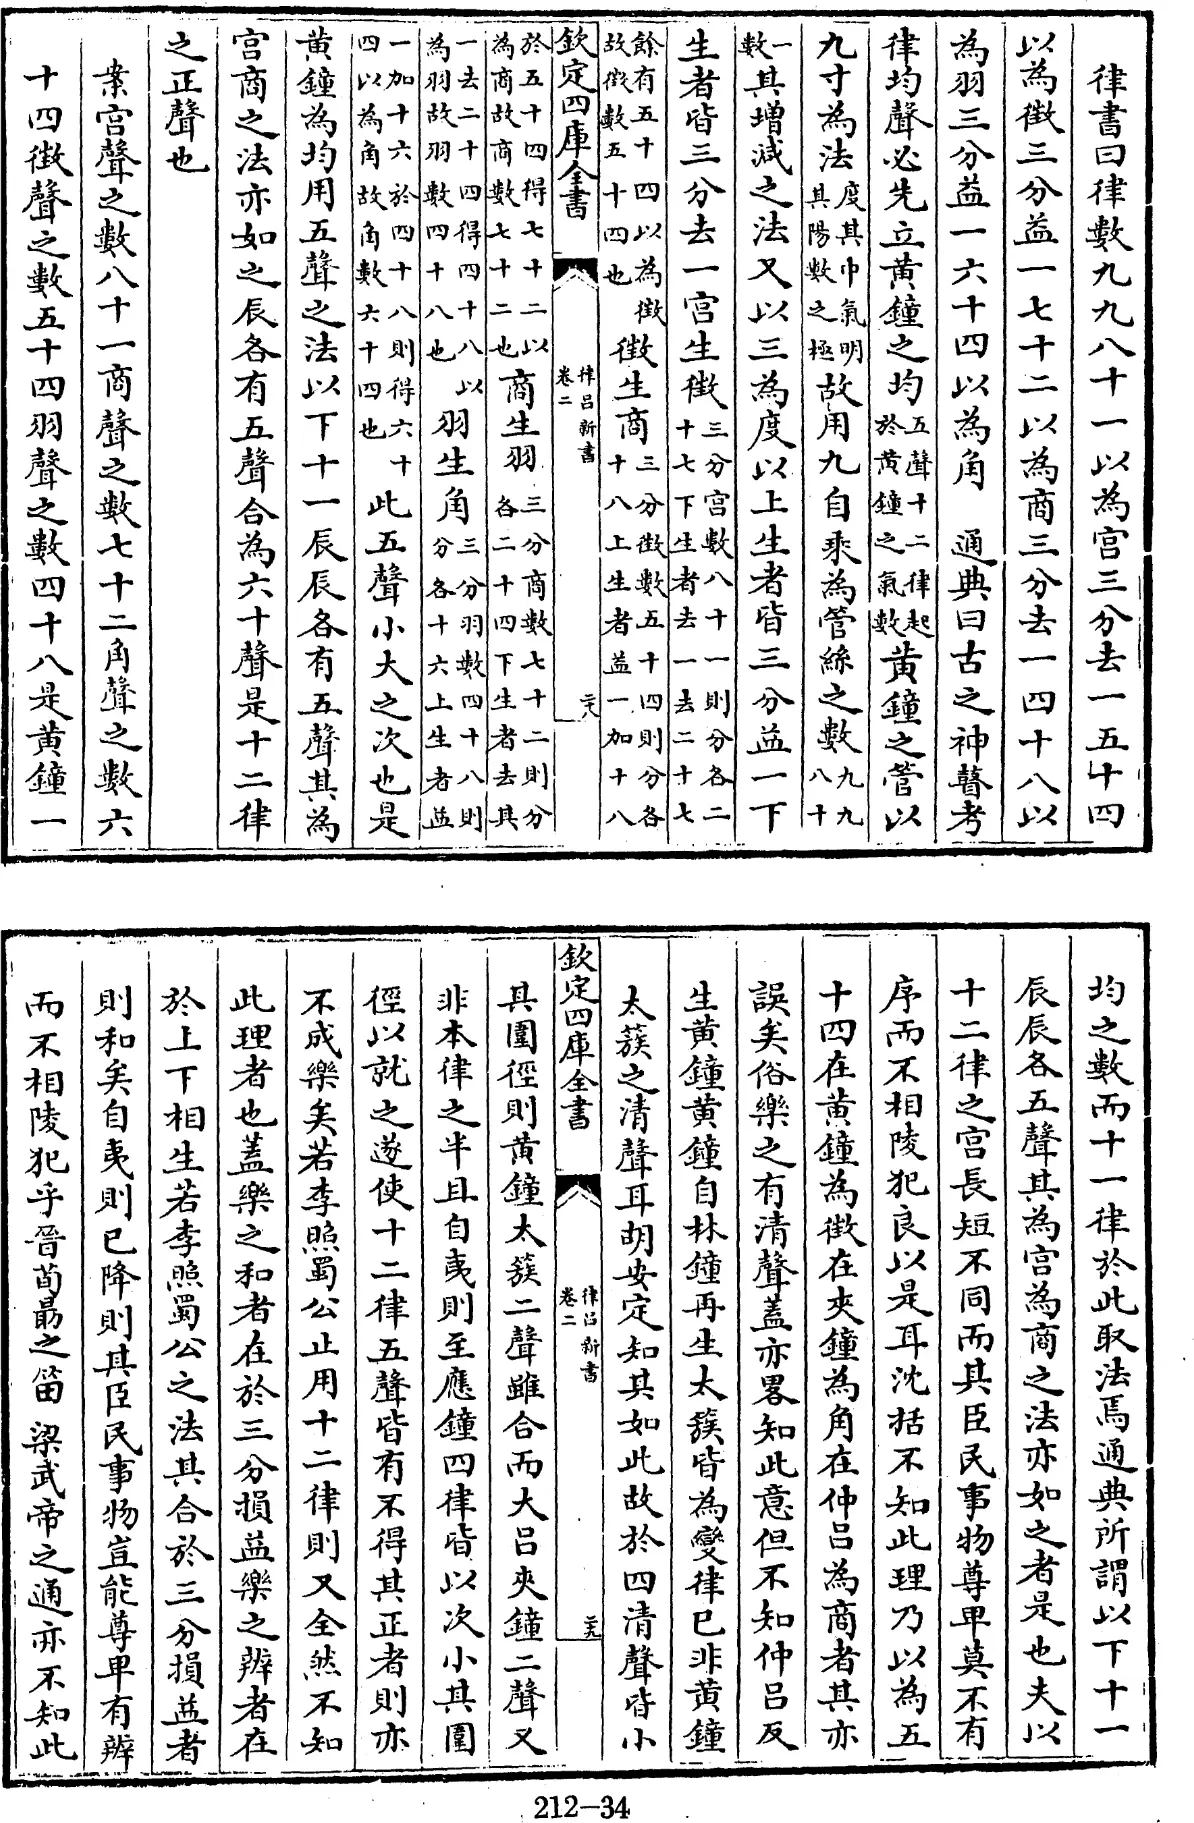 律書曰律數九九八十一以為宮三分去一五十四
以為徵三分益一七十二以為商三分去一四十八以
為羽三分益一六十四以為角　通典曰古之神瞽考
律均聲必先立黃鐘之均五聲十二律起於黃鐘之氣數黃鐘之管以
九寸為法度其中氣明其陽數之極故用九自乘為管絲之數九九八十
一數其增減之法又以三為度以上生者皆三分益一下
生者皆三分去一宮生徵三分宮數八十一則分各二十七下生者去一去二十七
餘有五十四以為徵故徵數五十四也徵生商三分徵數五十四則分各十八上生者益一加十八
欽定四庫全書　律呂新書卷二　二八
於五十四得七十二以為商故商數七十二也商生羽三分商數七十二則分各二十四下生者去其
一去二十四得四十八以為羽故羽數四十八也羽生角三分羽數四十八則分各十六上生者益
一加十六於四十八則得六十四以為角故角數六十四也此五聲小大之次也是
黃鐘為均用五聲之法以下十一辰辰各有五聲其為
宮商之法亦如之辰各有五聲合為六十聲是十二律
之正聲也
案宮聲之數八十一商聲之數七十二角聲之數六
十四徵聲之數五十四羽聲之數四十八是黃鐘一
均之數而十一律於此取法焉通典所謂以下十一
辰辰各五聲其為宮為商之法亦如之者是也夫以
十二律之宮長短不同而其臣民事物尊卑莫不有
序而不相陵犯良以是耳沈括不知此理乃以為五
十四在黃鐘為徵在夾鐘為角在仲呂為商者其亦
誤矣俗樂之有清聲蓋亦畧知此意但不知仲呂反
生黃鐘黃鐘自林鐘再生太簇皆為變律已非黃鐘
太簇之清聲耳胡安定知其如此故於四清聲皆小
欽定四庫全書　律呂新書卷二　二九
其圍徑則黃鐘太簇二聲雖合而大呂夾鐘二聲又
非本律之半且自夷則至應鐘四律皆以次小其圍
徑以就之遂使十二律五聲皆有不得其正者則亦
不成樂矣若李照蜀公止用十二律則又全然不知
此理者也蓋樂之和者在於三分損益樂之辨者在
於上下相生若李照蜀公之法其合於三分損益者
則和矣自夷則已降則其臣民事物豈能尊卑有辨
而不相陵犯乎晉荀勗之笛梁武帝之通亦不知此
212-34